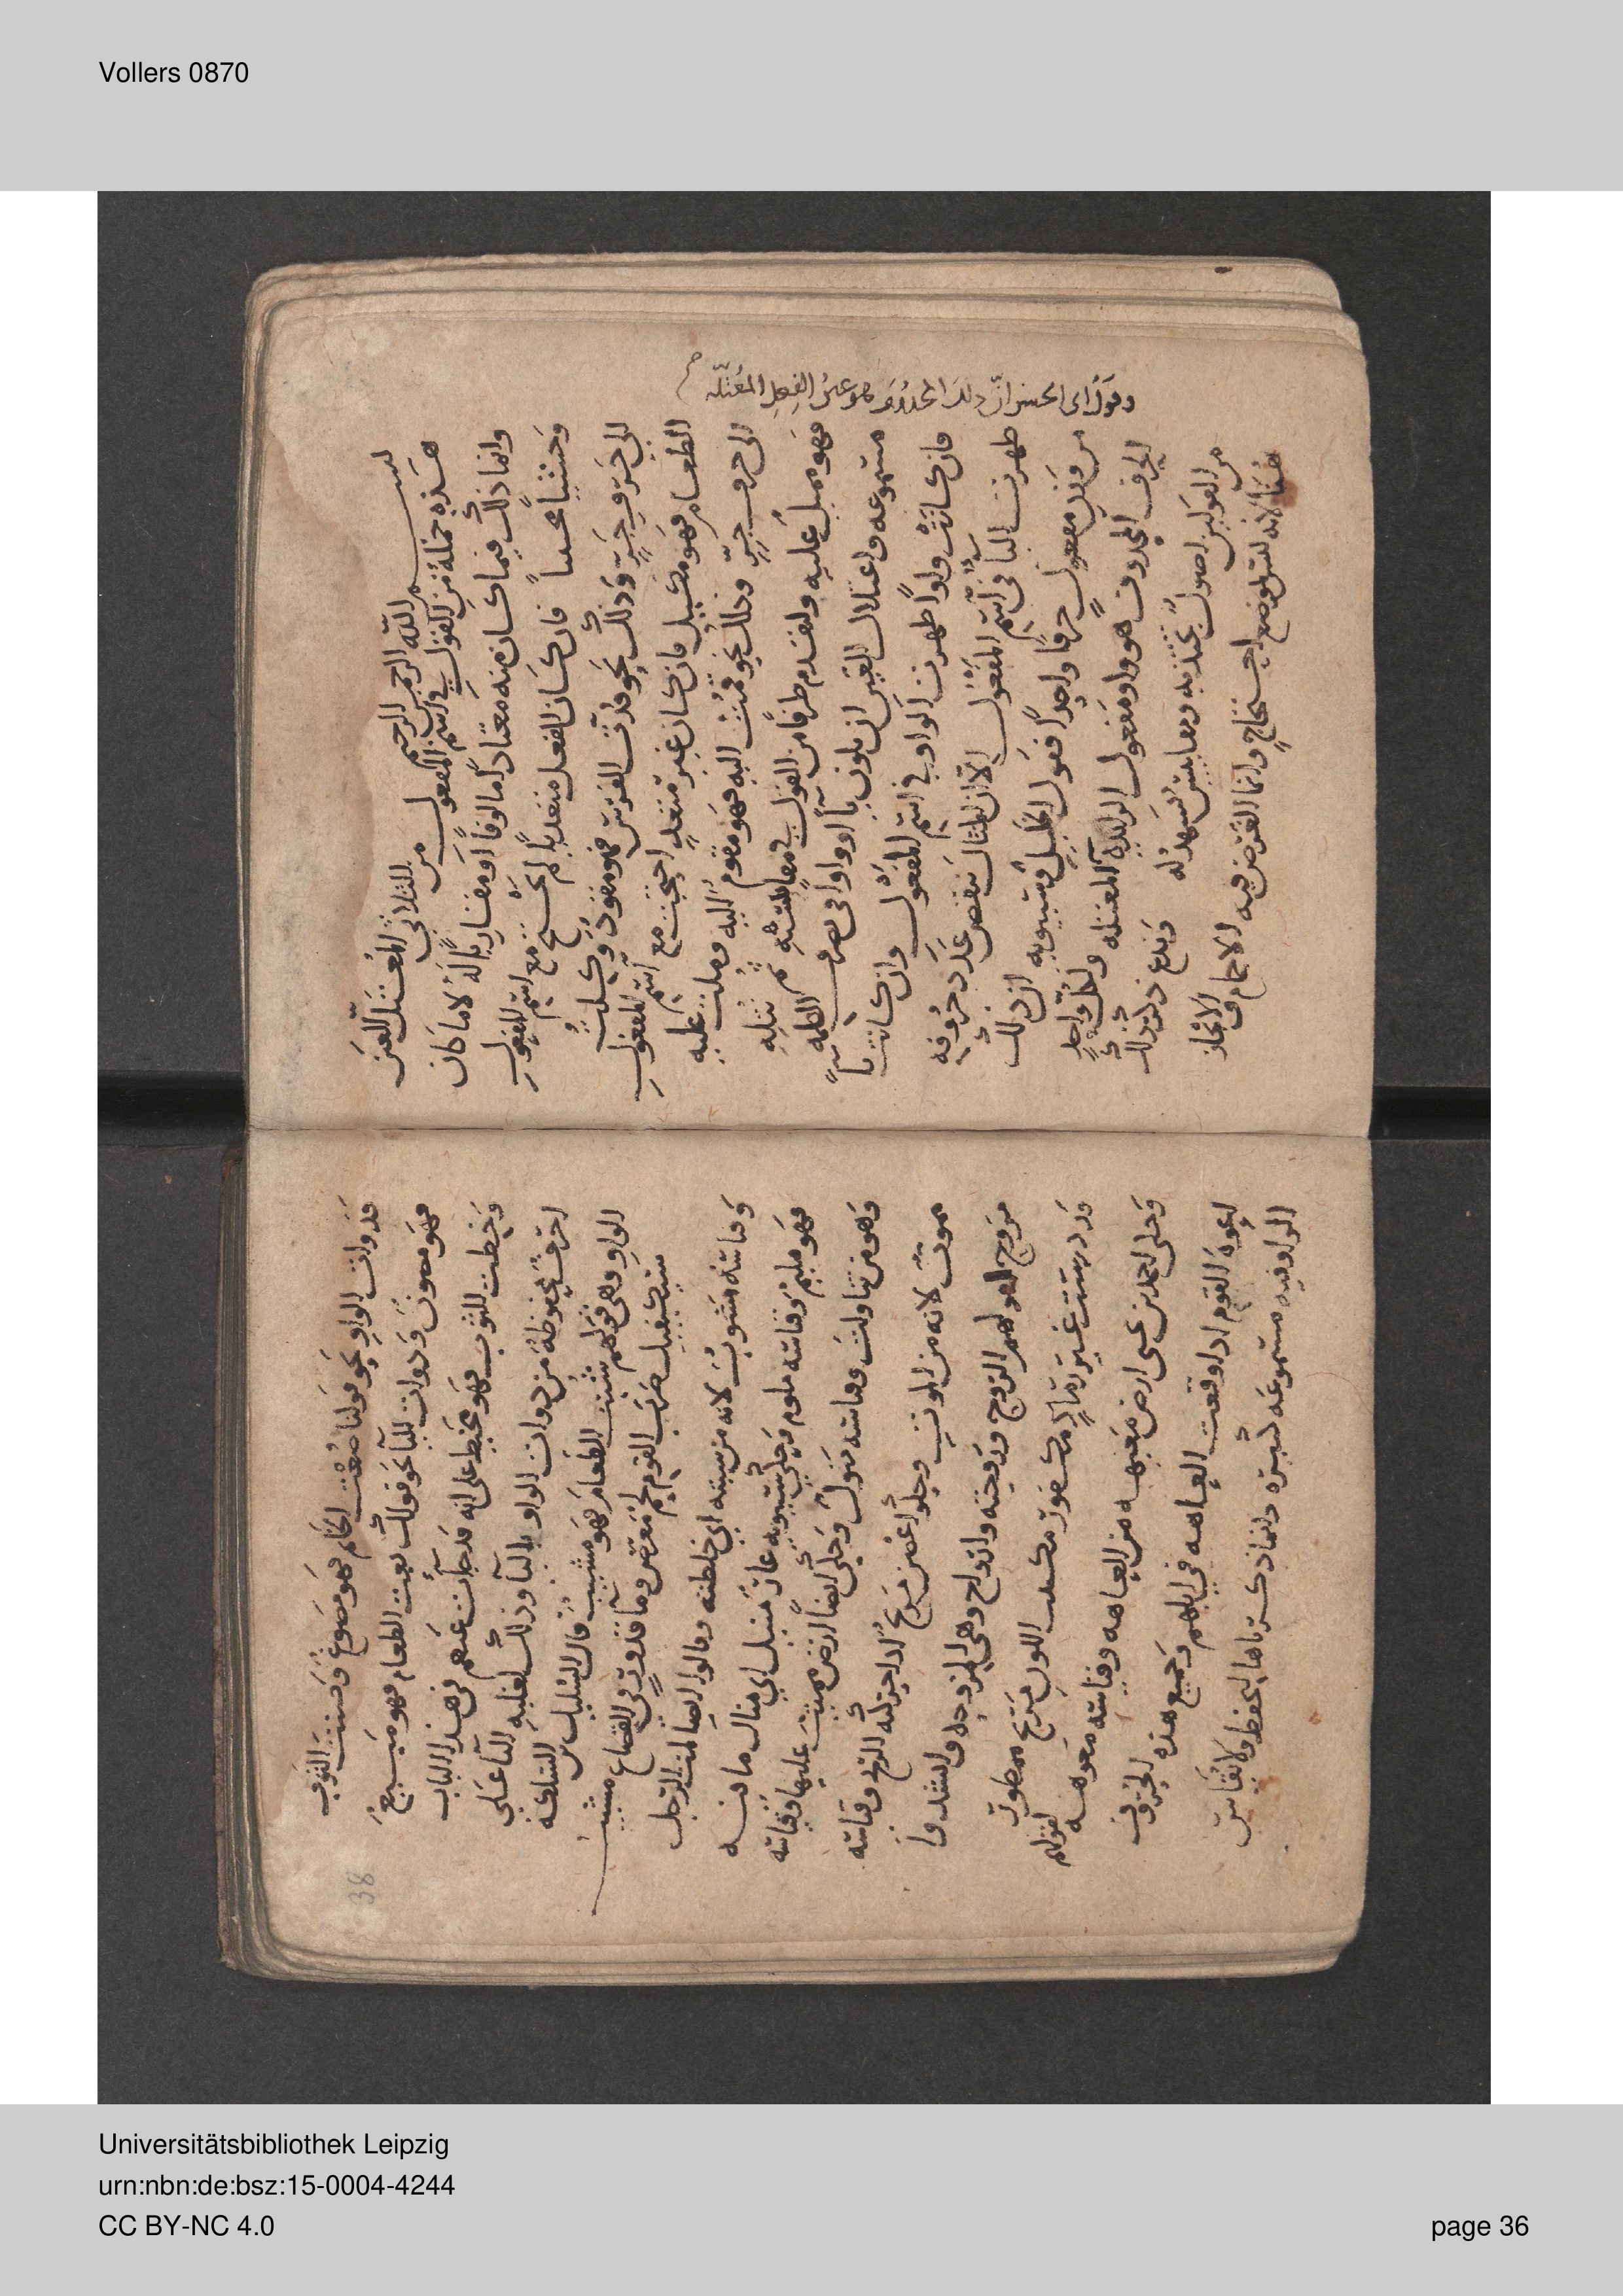 Vollers 0870
بسم الله الرحمن الرحيم
هذه جملة من القول في اسم المفعول من الثلاثي المعتل العين
وانما ذلك فيما كان منه معتادا مالوفا او مقاربا له لا ما كان
وحشيا فان كان الفعل متعديا لم يحتج مع اسم المفعول
الى حرف جر وذلك نحو قدت الفرس فهو مقود وكلت
الطعام فهو مكيل فان كان غير متعد احتجت مع اسم المفعول
الى حرف جر وذلك نحو قمت اليه فهو مقوم اليه وملت عليه
فهو مميل عليه ولنقدم طرفا من القول في ثم نتله
مسموعه واعتلال العين ان يكون يا او واوا في تصرف الكلمه
فان كانت واوا ظهرت الواو في اسم المفعول وان كانت يا
ظهرت اليا في اسم المفعول الا ان المثال تنقص عدد حروفه
من وزن مفعول حرفا واحدا فقول الخليل وسيبويه ان ذلك
الحرف المحذوف هو واو مفعول الزايدة ولكل واحد
من القولين اصول تجتذبه ومقاييس تشهد له وندع ذكر ذلك
هنا لانه ليس بموضع احتجاج وانما الغرض فيه والايجاز
وقول ابي الحسن ان ذلك المحذوف هو عين الفعل المعتله صح
فذوات الواو نحو قولنا صغت الخاتم فهو مصوغ وصنت الثوب
فهو مصون وذوات اليا نحو قولك بعت الطعام فهو مبيع
وخطت الثوب فهو مخيط على انه قد جات عنهم في هذا الباب
احرف محفوظة من ذوات الواو باليا وذلك لغلبه اليا على
الواو وهي قولهم شبت الطعام فهو مشيب قال السليك بن السلكة
سيكفيك ضرب القوم لحم معرص وما قدور في القصاع مشيب
وقياسه مشوب لانه من شبته اي خلطته وقالوا ايضا لمت الرجل
فهو مليم وقياسه ملوم وحكى سيبويه غار منيل اي ينال ما فيه
وهو من تناولت وقياسه منول وحكي ايضا ارض مميت عليها وقياسه
مموت لانه من الموت وحكوا غصن مريح اذا حركته الريح وقياسه
مروح لقولهم الروح وروحته وارواح وهي المروحه وانشدوا
قد درست غير رماد مكفور مكتئب اللون مريح ممطور
وحكى احمد بن يحيى ارض معيهه من العاهه وقياسه معوهه لقولهم
اعوه القوم اذا وقعت العاهه في ابلهم وجميع هذه الحروف
الواو فيه مسموعه كثيره وانما ذكرناها لتحفظ ولا يقاس
38
Universitätsbibliothek Leipzig
urn:nbn:de:bsz:15-0004-4244
CC BY-NC 4.0
page 36